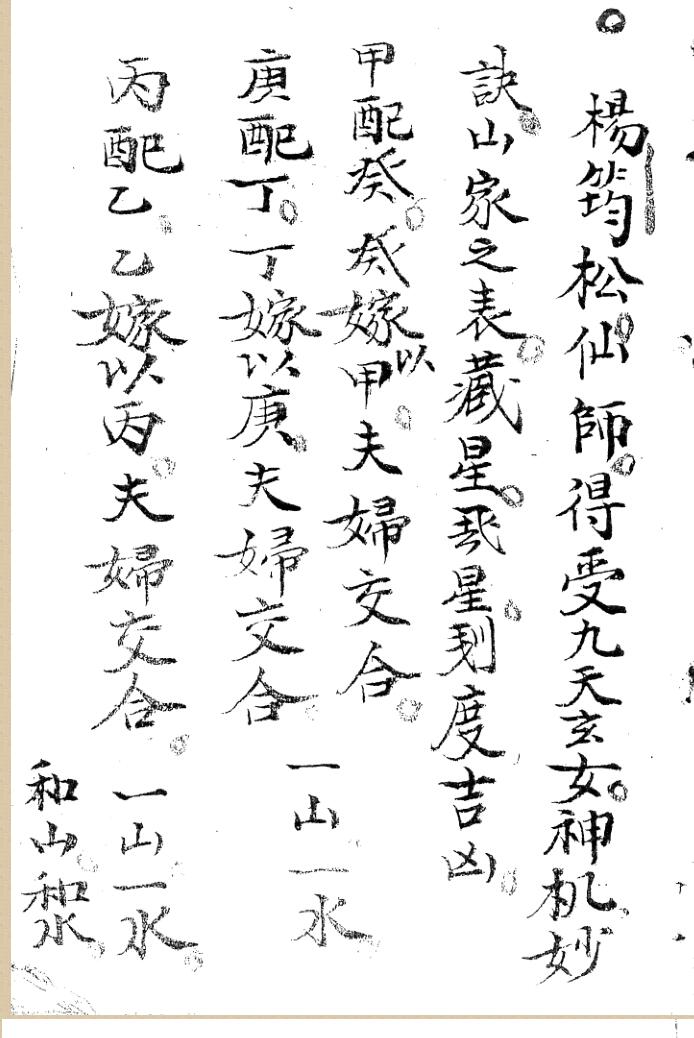 楊筠松仙師得受九天玄女神机妙
訣山家之表藏星飛星刻度吉凶
甲配癸癸嫁以甲夫婦交合
庚配丁丁嫁以庚夫婦交合
一山一水
丙配乙乙嫁以丙夫婦交合
一山一水
和山和水